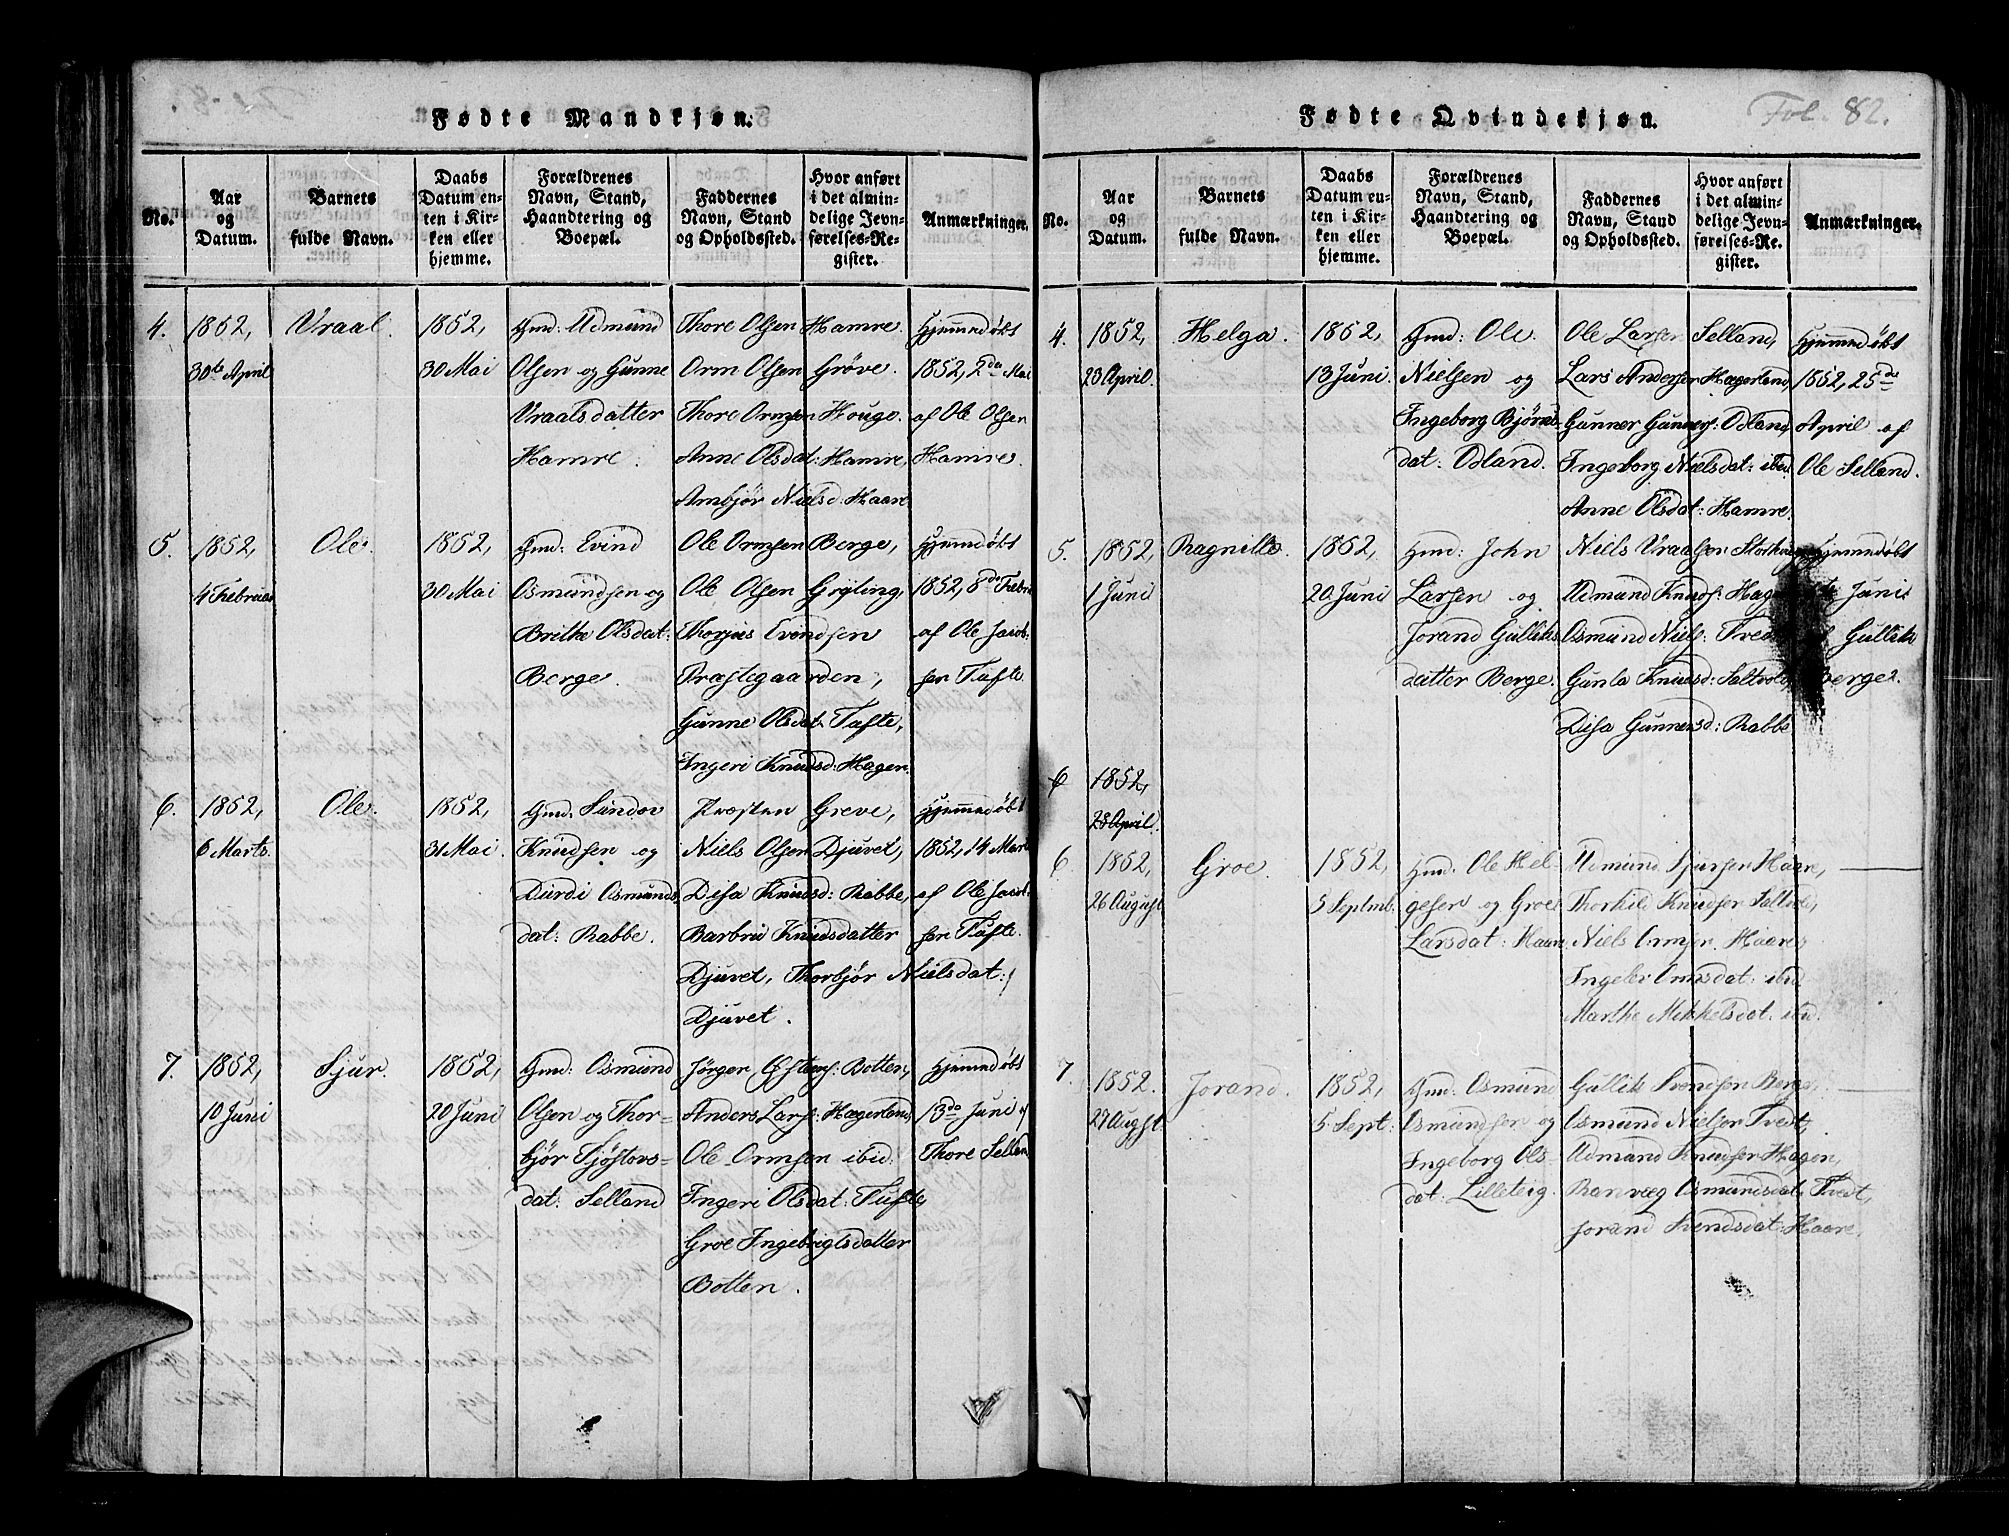 Fødte Mandkjøn.
No.
Aar
og
Datum.
Barnets
fulde Navn.
Daabs
Datum en-
ten i Kir-
ken eller
hjemme.
Forældrenes
Navn, Stand,
Haandtering og
Boepæl.
Faddernes
Navn, Stand
og Opholdssted.
Hvor anført
i det almin-
delige Jevn-
førelses-Re-
gister.
Anmærkninger.
4.
1852,
30te April
Vraal.
1852,
30 Mai
Gmd: Admund
Olsen og Gunne
Vraalsdatter
Hamre.
Thore Olsen Hamre.
Orm Olsen Grøve.
Thore Ormsen Houge.
Anne Olsdat: Hamre,
Ambjør Nielsd: Haare
Hjemmedøbt
1852, 2den Mai
af Ole Olsen
Hamre.
5.
1852,
4 Februar
Ole.
1852,
30 Mai
Gmd: Evind
Osmundsen og
Brithe Olsdat:
Berge.
Ole Ormsen Berge,
Ole Olsen Gryting,
Thorjus Evindsen
Præstegaarden,
Gunne Olsdat: Tufte,
Ingeri Knudsd: Hagen.
Hjemmedøbt
1852, 8de Febru
af Ole Jacob-
sen Tufte.
6.
1852,
6 Marts.
Ole.
1852,
31 Mai.
Gmd: Sundov
Knudsen og
Durdi Osmunds-
dat: Rabbe.
Præsten Greve,
Niels Olsen Djuvet,
Disa Knudsd: Rabbe,
Barbru Knudsdatter
Djuvet, Thorbjør Nielsdat:
Djuvet.
Hjemmedøbt
1852, 14 Mart
af Ole Jacob-
sen Tufte.
7.
1852,
10 Juni
Sjur.
1852,
20 Juni
Gmd: Osmund
Olsen og Thor-
bjør Tjøstovs-
dat: Selland
Jörgen Østens: Botten,
Anders Lars: Hægerland,
Ole Ormsen ibid:
Ingeri Olsdat: Tufte,
Groe Ingebrigtsdatter
Botten.
Hjemmedøbt
13de Juni af
Thore Sellan
Fødte Qvindekjøn.
Fol. 82.
No.
Aar
og
Datum.
Barnets
fulde Navn.
Daabs
Datum en-
ten i Kir-
ken eller
hjemme.
Forældrenes
Navn, Stand,
Haandtering og
Boepæl.
Faddernes
Navn, Stand
og Opholdssted.
Hvor anført
i det almin-
delige Jevn-
førelses-Re-
gister.
Anmærkninger.
4.
1852,
23 April.
Helga.
1852,
13 Juni.
Gmd: Ole
Nielsen og
Ingeborg Bjørns-
dat: Odland.
Ole Larsen Selland,
Lars Andersen Hægerland,
Gunner Gunners: Odland,
Ingeborg Nielsdat: ibid
Anne Olsdat: Hamre.
Hjemmedøbt
1852, 25de
April af
Ole Selland.
5.
1852,
1 Juni
Ragnille.
1852,
20 Juni
Gmd: John
Larsen og
Jorand Gulliks
datter Berge.
Niels Vraalsen
Admund Knuds:
Osmund Niels:
Gunla Knudsd:
Disa Gunnersd: Rabbe
Hjemmedøbt
Juni
af Gullik
Berge.
6
1852,
28 April.
6
1852,
26 August
Groe.
1852,
5 Septmb.
Gmd: Ole Hel-
gesen og Groe
Larsdat: Haare
Admund Sjursen Haare,
Thorkild Knudsen
Niels Ormsen Haare,
Ormsdat: ibid
Marthe Mikkelsdat: ibid.
7.
1852.
27 August
Jorand.
1852,
5 Sept:
Gmd: Osmund
Osmundsen og
Ingeborg Ols-
dat: Lilleteig.
Gullik Svendsen Berge,
Osmund Nielsen Tvedt,
Admund Knudsen Hagen,
Ranveg Osmundsdat: Tvedt,
Jorand Svendsdat: Haare.